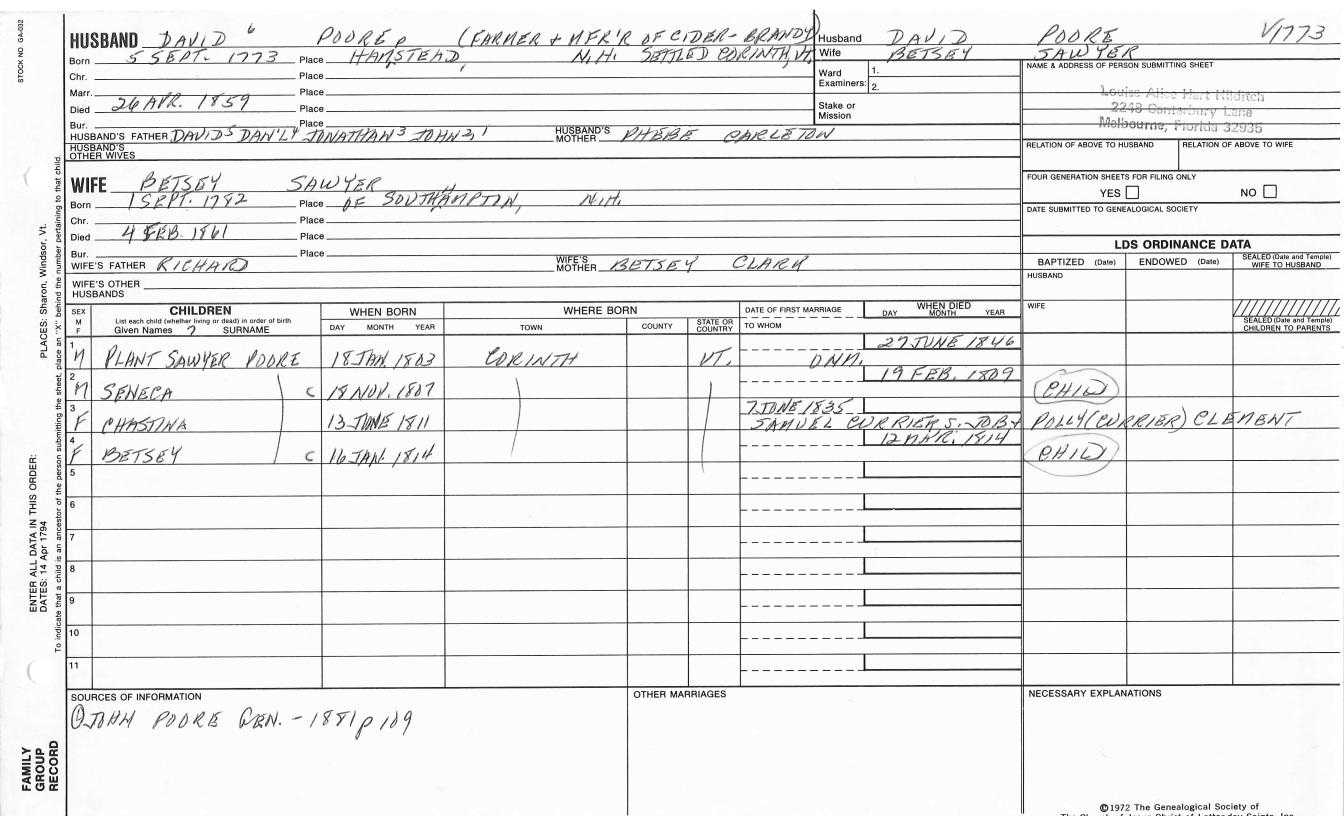 STOCK NO. GA-032
HUSBAND DAVID 6 POORE, (FARMER + MFR'R OF CIDER-BRANDY)
Born 5 SEPT. 1773 Place HAMSTEAD, N.H. SETTLED CORINTH, VT.
Chr. Place
Marr. Place
Died 26 APR. 1859 Place
Bur. Place
HUSBAND'S FATHER DAVID5 DAN'L4 JONATHAN3 JOHN2,1 HUSBAND'S MOTHER PHEBE CARLETON
HUSBAND'S OTHER WIVES
Husband DAVID POORE V1773
Wife BETSEY SAWYER
Ward Examiners: 1.
2.
Stake or Mission
NAME & ADDRESS OF PERSON SUBMITTING SHEET
Louise Alice Hart Hilditch
2248 Canterbury Lane
Melbourne, Florida 32935
RELATION OF ABOVE TO HUSBAND RELATION OF ABOVE TO WIFE
FOUR GENERATION SHEETS FOR FILING ONLY
YES NO
DATE SUBMITTED TO GENEALOGICAL SOCIETY
WIFE BETSEY SAWYER
Born 1 SEPT. 1782 Place OF SOUTHAMPTON, N.H.
Chr. Place
Died 4 FEB. 1861 Place
Bur. Place
WIFE'S FATHER RICHARD WIFE'S MOTHER BETSEY CLARK
WIFE'S OTHER HUSBANDS
LDS ORDINANCE DATA
BAPTIZED (Date) ENDOWED (Date) SEALED (Date and Temple) WIFE TO HUSBAND
HUSBAND
WIFE
SEALED (Date and Temple) CHILDREN TO PARENTS
SEX M F CHILDREN List each child (whether living or dead) in order of birth Given Names 7 SURNAME WHEN BORN DAY MONTH YEAR WHERE BORN TOWN COUNTY STATE OR COUNTRY DATE OF FIRST MARRIAGE TO WHOM WHEN DIED DAY MONTH YEAR
27 JUNE 1846
1 M PLANT SAWYER POORE 18 JAN. 1803 CORINTH VT. DNM.
19 FEB. 1809
2 M SENECA C 18 NOV. 1807 CHILD
7 JUNE 1835
3 F CHASTINA 13 JUNE 1811 SAMUEL CURRIER, S. JOB + POLLY (CURRIER) CLEMENT
12 MAR. 1814
4 F BETSEY C 16 JAN. 1814 CHILD
5
6
7
8
9
10
11
SOURCES OF INFORMATION
① JOHN POORE GEN. - 1881 p 109
OTHER MARRIAGES
NECESSARY EXPLANATIONS
©1972 The Genealogical Society of
The Church of Jesus Christ of Latter-day Saints, Inc.
PLACES: Sharon, Windsor, Vt.
ENTER ALL DATA IN THIS ORDER:
DATES: 14 Apr 1794
To indicate that a child is an ancestor of the person submitting the sheet, place an "X" behind the number pertaining to that child.
FAMILY GROUP RECORD